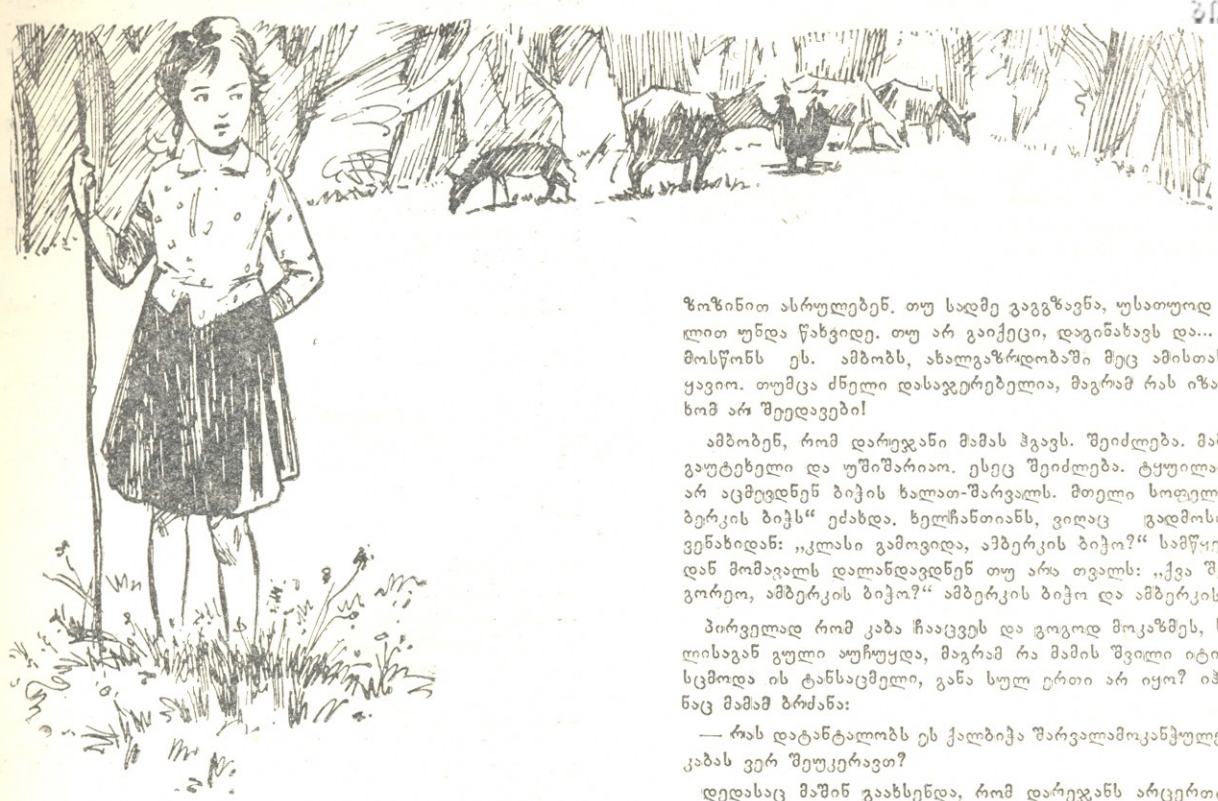 ზოზინით ასრულებენ. თუ სადმე გაგგზავნა, უსათუოდ
ლით უნდა წახვიდე. თუ არ გაიქეცი, დაგინახავს და...
მოსწონს ეს. ამბობს, ახალგაზრდობაში მეც
ყავიო. თუმცა ძნელი დასაჯერებელია, მაგრამ რას
ხომ არ შეედავები!
ამბობენ, რომ დარეჯანი მამას ჰგავს. შეიძლება.
გაუტეხელი და უშიშარიაო. ესეც შეიძლება.
არ აცმევდნენ ბიჭის ხალათ-შარვალს. მთელი
ბერკის ბიჭს“ ეძახდა. ხელჩანთიანს, ვიღაც
ვენახიდან: „კლასი გამოვიდა, ამბერკის ბიჭო?“
დან მომავალს დალანდავდნენ თუ არა თვალს: „ქვა
გორეო, ამბერკის ბიჭო?“ ამბერკის ბიჭო და ამბერკის
პირველად რომ კაბა ჩააცვეს და გოგოდ მოკაზმეს,
ლისაგან გული აუჩუყდა, მაგრამ რა მამის შვილი
სცმოდა ის ტანსაცმელი, განა სულ ერთი არ იყო?
ნაც მამამ ბრძანა:
— რას დატანტალობს ეს ქალბიჭა
კაბას ვერ შეუკერავთ?
დედასაც მაშინ გაახსენდა, რომ დარეჯანს